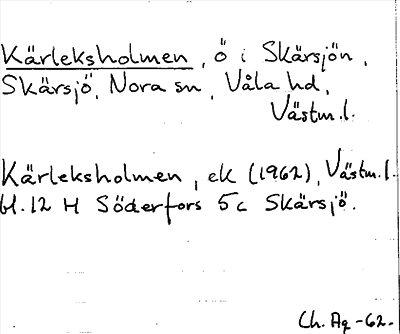 Kärleksholmen, ö i Skärsjön,
Skärsjö, Nora sn, Våla hd,
Västm.l.
Kärleksholmen, ek (1962), Västm.l.
bl. 12 H Söderfors 5c Skärsjö.
Ch. Ag -62.